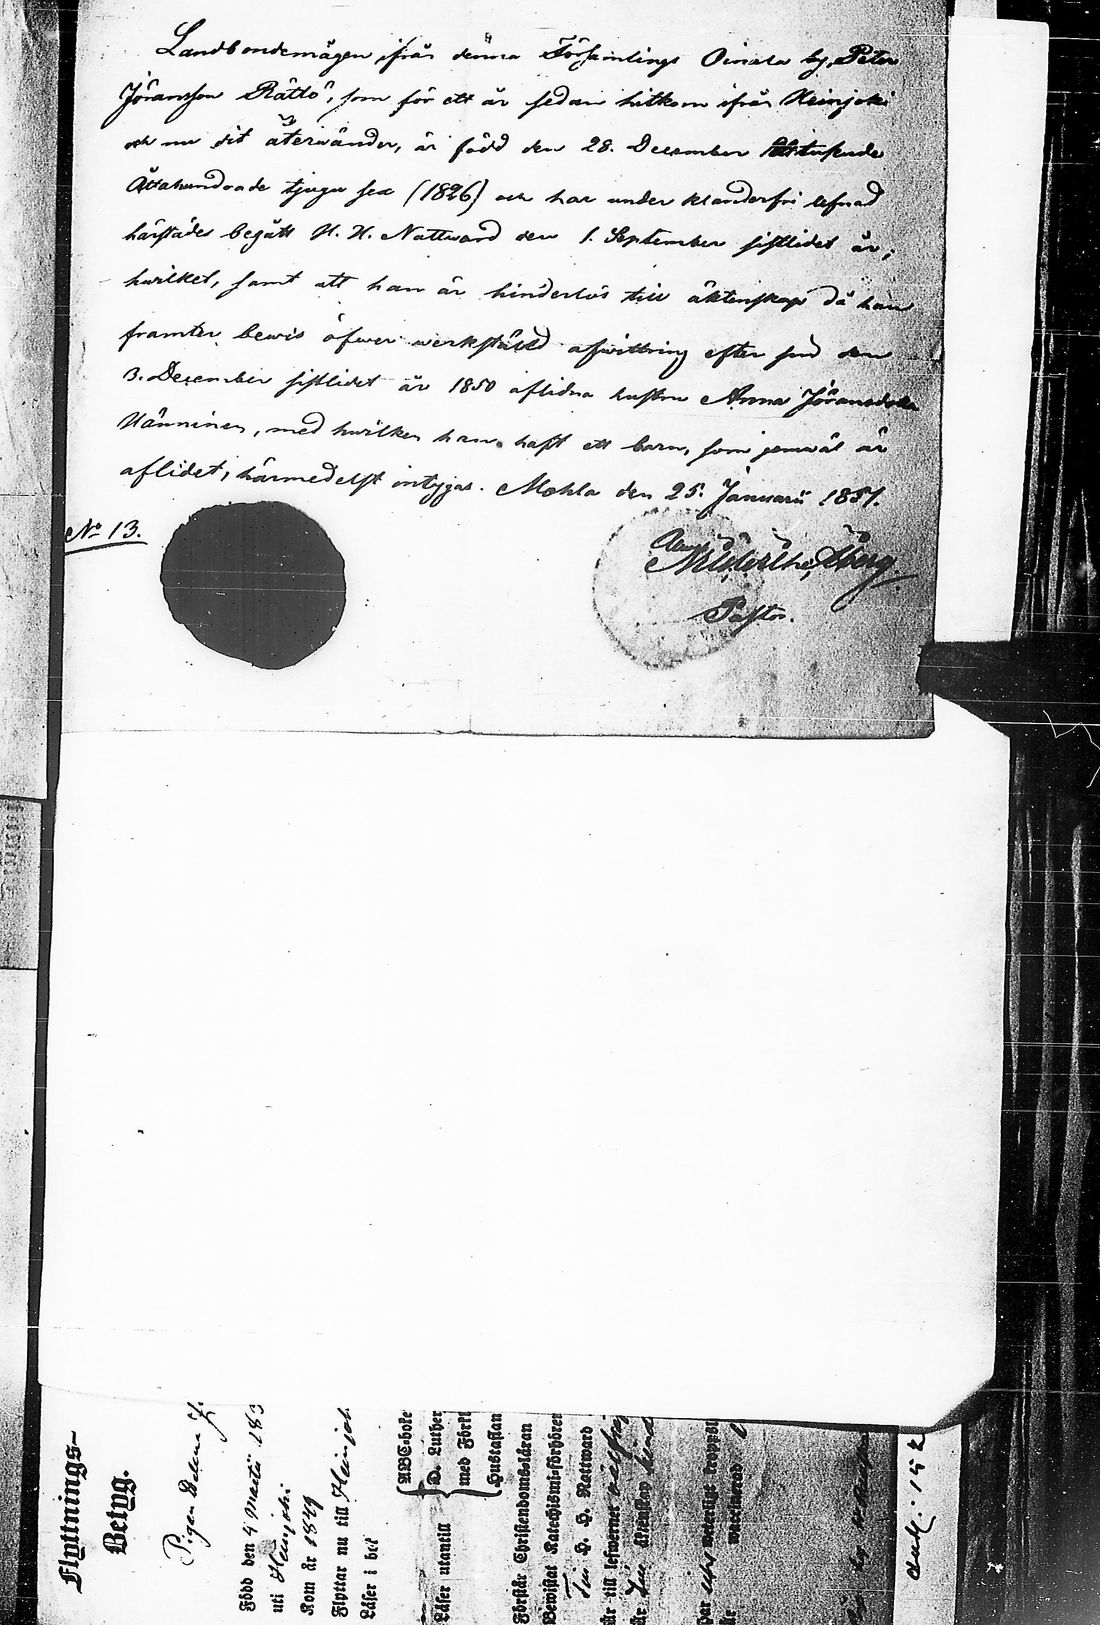 Landbondemågen ifrån denna Församlings Oinala by, Peter
Jöransson Rättö, som för ett år sedan hitkom ifrån Heinjoki
och nu dit återwänder, är född den 28. December Ettusende
Åttahundrade tjugu sex (1826) och har under klanderfri lefnad
härstädes begått H. H. Nattward den 1. September sistlidet år;
hwilket, samt att han är hinderlös till äktenskap då han
framter bewis öfwer werkställd afwittring efter sin den
3. December sistlidet år 1850 aflidna hustru Anna Jöransdotter
Hänninen, med hwilken han haft ett barn, som jemwäl är
aflidet, härmedelst intygas. Mohla den 25. Januarii 1851.
No 13.
Åberg
Pastor.
Flyttnings-
Betyg.
Pigan Helena J.
Född den 4 Martii 183
uti Heinjoki
Kom år 1849
Flyttar nu till Heinjok
Läser i bok
Läser utantill
ABC-boke
D. Luther
med Förkl
Hustaflan
Förstår Christendoms-läran
Bewistat Katechismi-förhören
H. H. Nattward
Är till lefwernet
Är till äktenskap hind
Har
Är